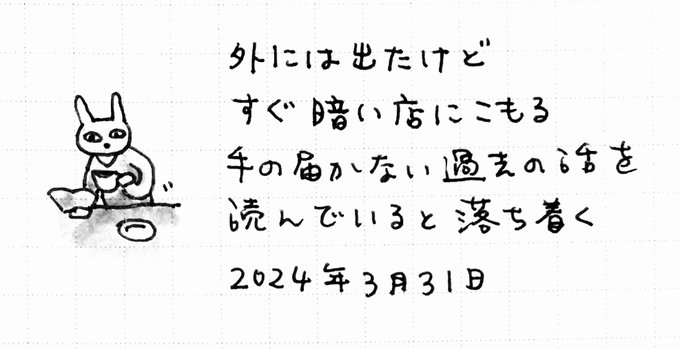 外には出たけど
すぐ暗い店にこもる
手の届かない過去の話を
読んでいると落ち着く
2024年3月31日